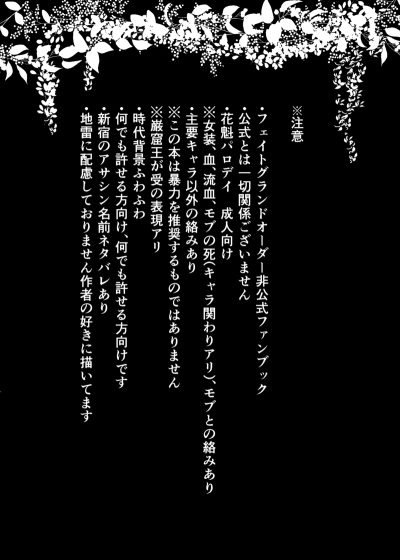 ※注意
・フェイトグランドオーダー非公式ファンブック
・公式とは一切関係ございません
・花魁パロデイ　成人向け
※女装、血、流血、モブの死(キャラ関わりアリ)、モブとの絡みあり
・主要キャラ以外の絡みあり
※この本は暴力を推奨するものではありません
※巌窟王が受の表現アリ
・時代背景ふわふわ
・何でも許せる方向け、何でも許せる方向けです
・新宿のアサシン名前ネタバレあり
・地雷に配慮しておりません作者の好きに描いてます